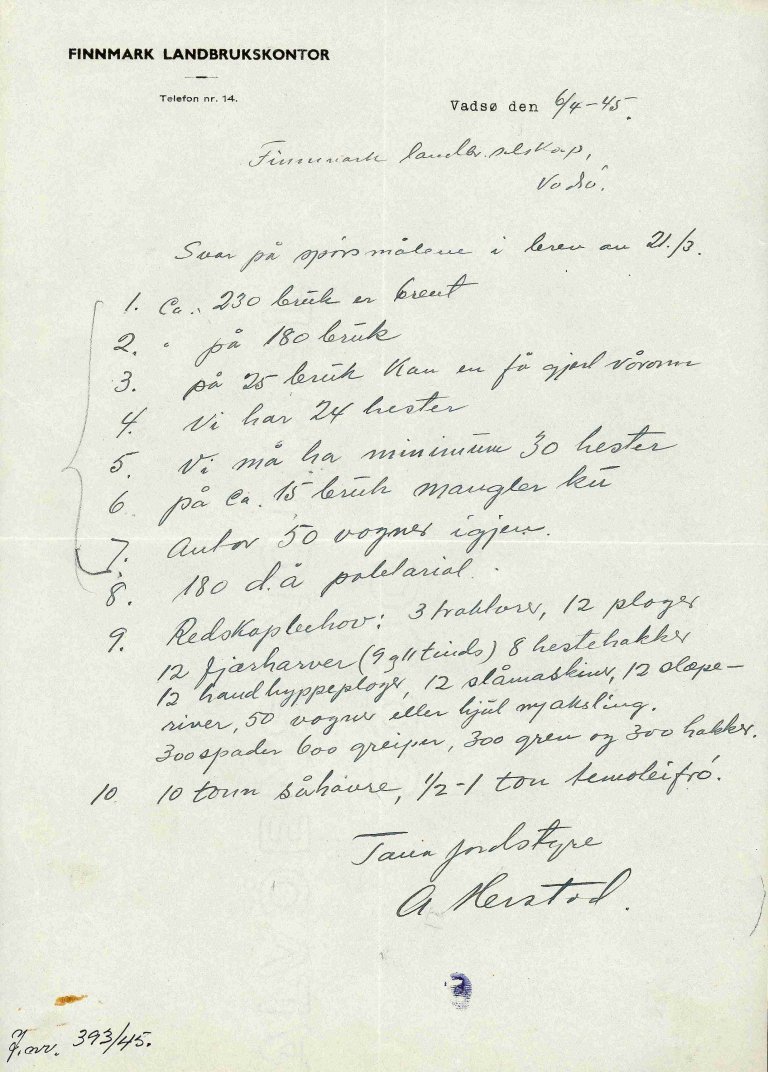 FINNMARK LANDBRUKSKONTOR
Telefon nr. 14.
Vadsø den 6/4-45.
Finnmark landbr. selskap,
Vadsø.
Svar på spørsmålene i brev av 21./3.
1. Ca. 230 bruk er brent
2. " på 180 bruk
3. på 25 bruk kan en få gjort våronn
4. Vi har 24 hester
5. Vi må ha minimum 30 hester
6 på ca. 15 bruk mangler ku
7. Antar 50 vogner igjen.
8. 180 d.å potetarial.
9. Redskapbehov: 3 traktorer, 12 ploger
12 fjærharver (9 og 11 tinds) 8 hestehakker
12 handhyppeploger, 12 slåmaskiner, 12 slepe-
river, 50 vogner eller hjul m/aksling.
300 spader 600 greiper, 300 grev og 300 hakker.
10 10 tonn såhavre, 1/2-1 ton timoteifrø.
Tana jordstyre
A Herstad.
J.nr. 393/45.